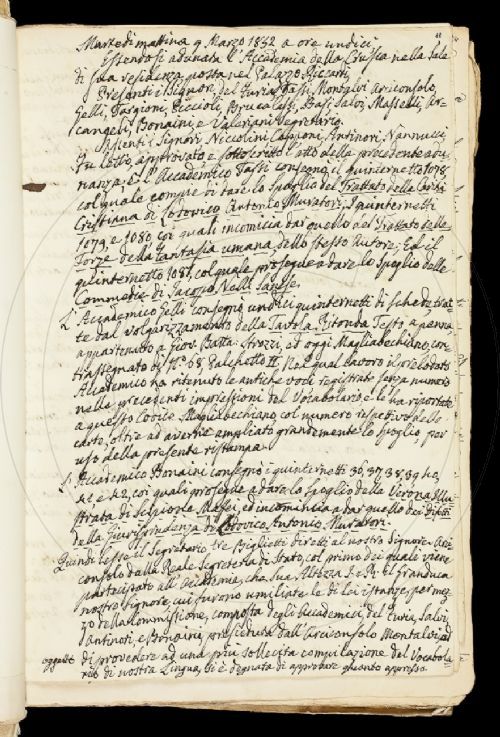 Martedì mattina 9 Marzo 1852 a ore undici;
Essendosi adunata l'Accademia della Crusca nella Sala
di sua residenza posta nel Palazzo Riccardi,
Presenti i Signori del Furia, Tassi, Montalvi Arciconsolo,
Gelli, Targioni, Piccioli, Brucalassi, Basi, Salvi, Masselli, Ar-
cangeli, Bonaini e Valeriani Segretario.
Assenti i Signori Niccolini Capponi Antinori, Vannucci
Fu letto, approvato e sottoscritto l'atto della precedente adu-
nanza; E l'Accademico Tassi consegnò il quinternetto 1078.
col quale compie di dare lo Spoglio del Trattato della Carità
Cristiana di Lodovico Antonio Muratori, I quinternetti
1079, e 1080 coi quali incomincia dar quello del Trattato delle
Forze della Fantasia umana dello stesso Autore; Ed il
quinternetto 1081. col quale prosegue a dare lo Spoglio delle
Commedie di Jacopo Nelli Sanese.
L'Accademico Gelli consegnò undici quinternetti di schede, trat-
te dal volgarizzamento della Tavola Ritonda Testo a penna
appartenuto a Giov. Batta. Strozzi, ed oggi Magliabechiano, con-
trassegnato di N.° 68. Palchetto II. Nel qual lavoro il prelodato
Accademico ha ritenuto le antiche voci registrate senza numero
nelle precedenti impressioni del Vocabolario, e le ha riportate
a questo Codice Magliabechiano, col numero respettivo delle
carte, oltre ad avere ampliato grandemente lo spoglio per
uso della presente ristampa.
L'Accademico Bonaini consegnò i quinternetti 36, 37, 38, 39, 40,
41 e 42, coi quali prosegue a dare lo Spoglio della Verona Illu-
strata di Scipione Maffei, ed incomincia a dar quello dei Difetti
della Giurisprudenza di Lodovico Antonio Muratori.
Quindi lesse il Segretario tre Biglietti diretti al nostro Signore Arci-
consolo dalla Reale Segreteria di Stato, col primo dei quali viene
partecipato all'Accademia, che Sua Altezza I. e R. il Granduca
nostro Signore, cui furono umiliate le di lei istanze, per mez-
zo della Commissione, composta degli Accademici, del Furia, Salvi,
Antinori, e Bonaini, presieduta dall'Arciconsolo Montalvi, ad
oggetto di provedere ad una più sollecita compilazione del Vocabola-
rio di nostra Lingua, si è degnata di approvare quanto appresso.